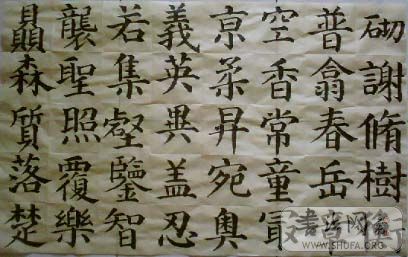 砌謝脩樹
普翕春岳
空香常童
亰柔昇宛奥
義英異盖忍
若集壑鑒智
襲聖照覆樂
森質落楚
书法网
WWW.SHUFA.ORG